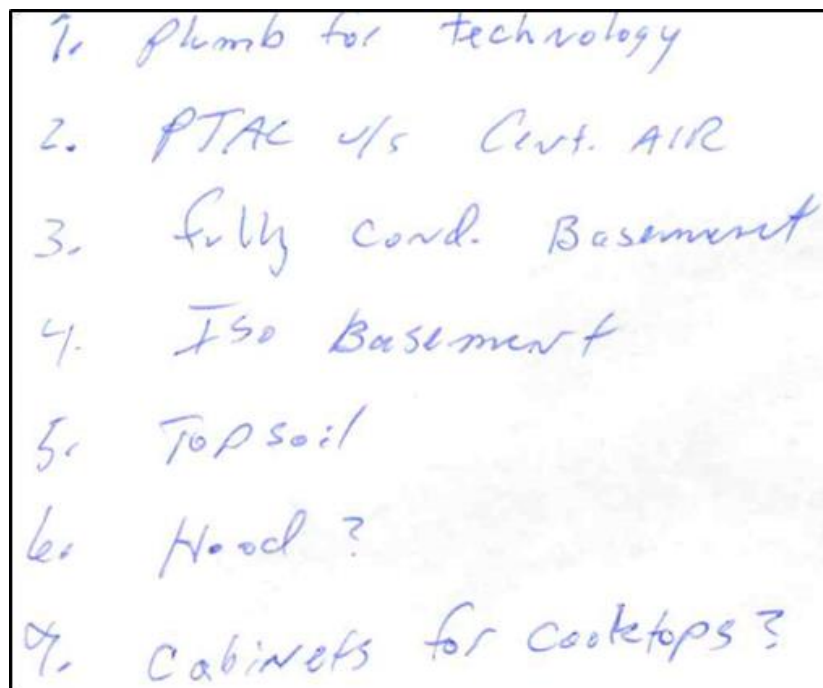 1. Plumb for technology
2. PTAC v/s Cent. AIR
3. fully cond. Basement
4. ISO Basement
5. Topsoil
6. Hood?
7. Cabinets for cooktops?